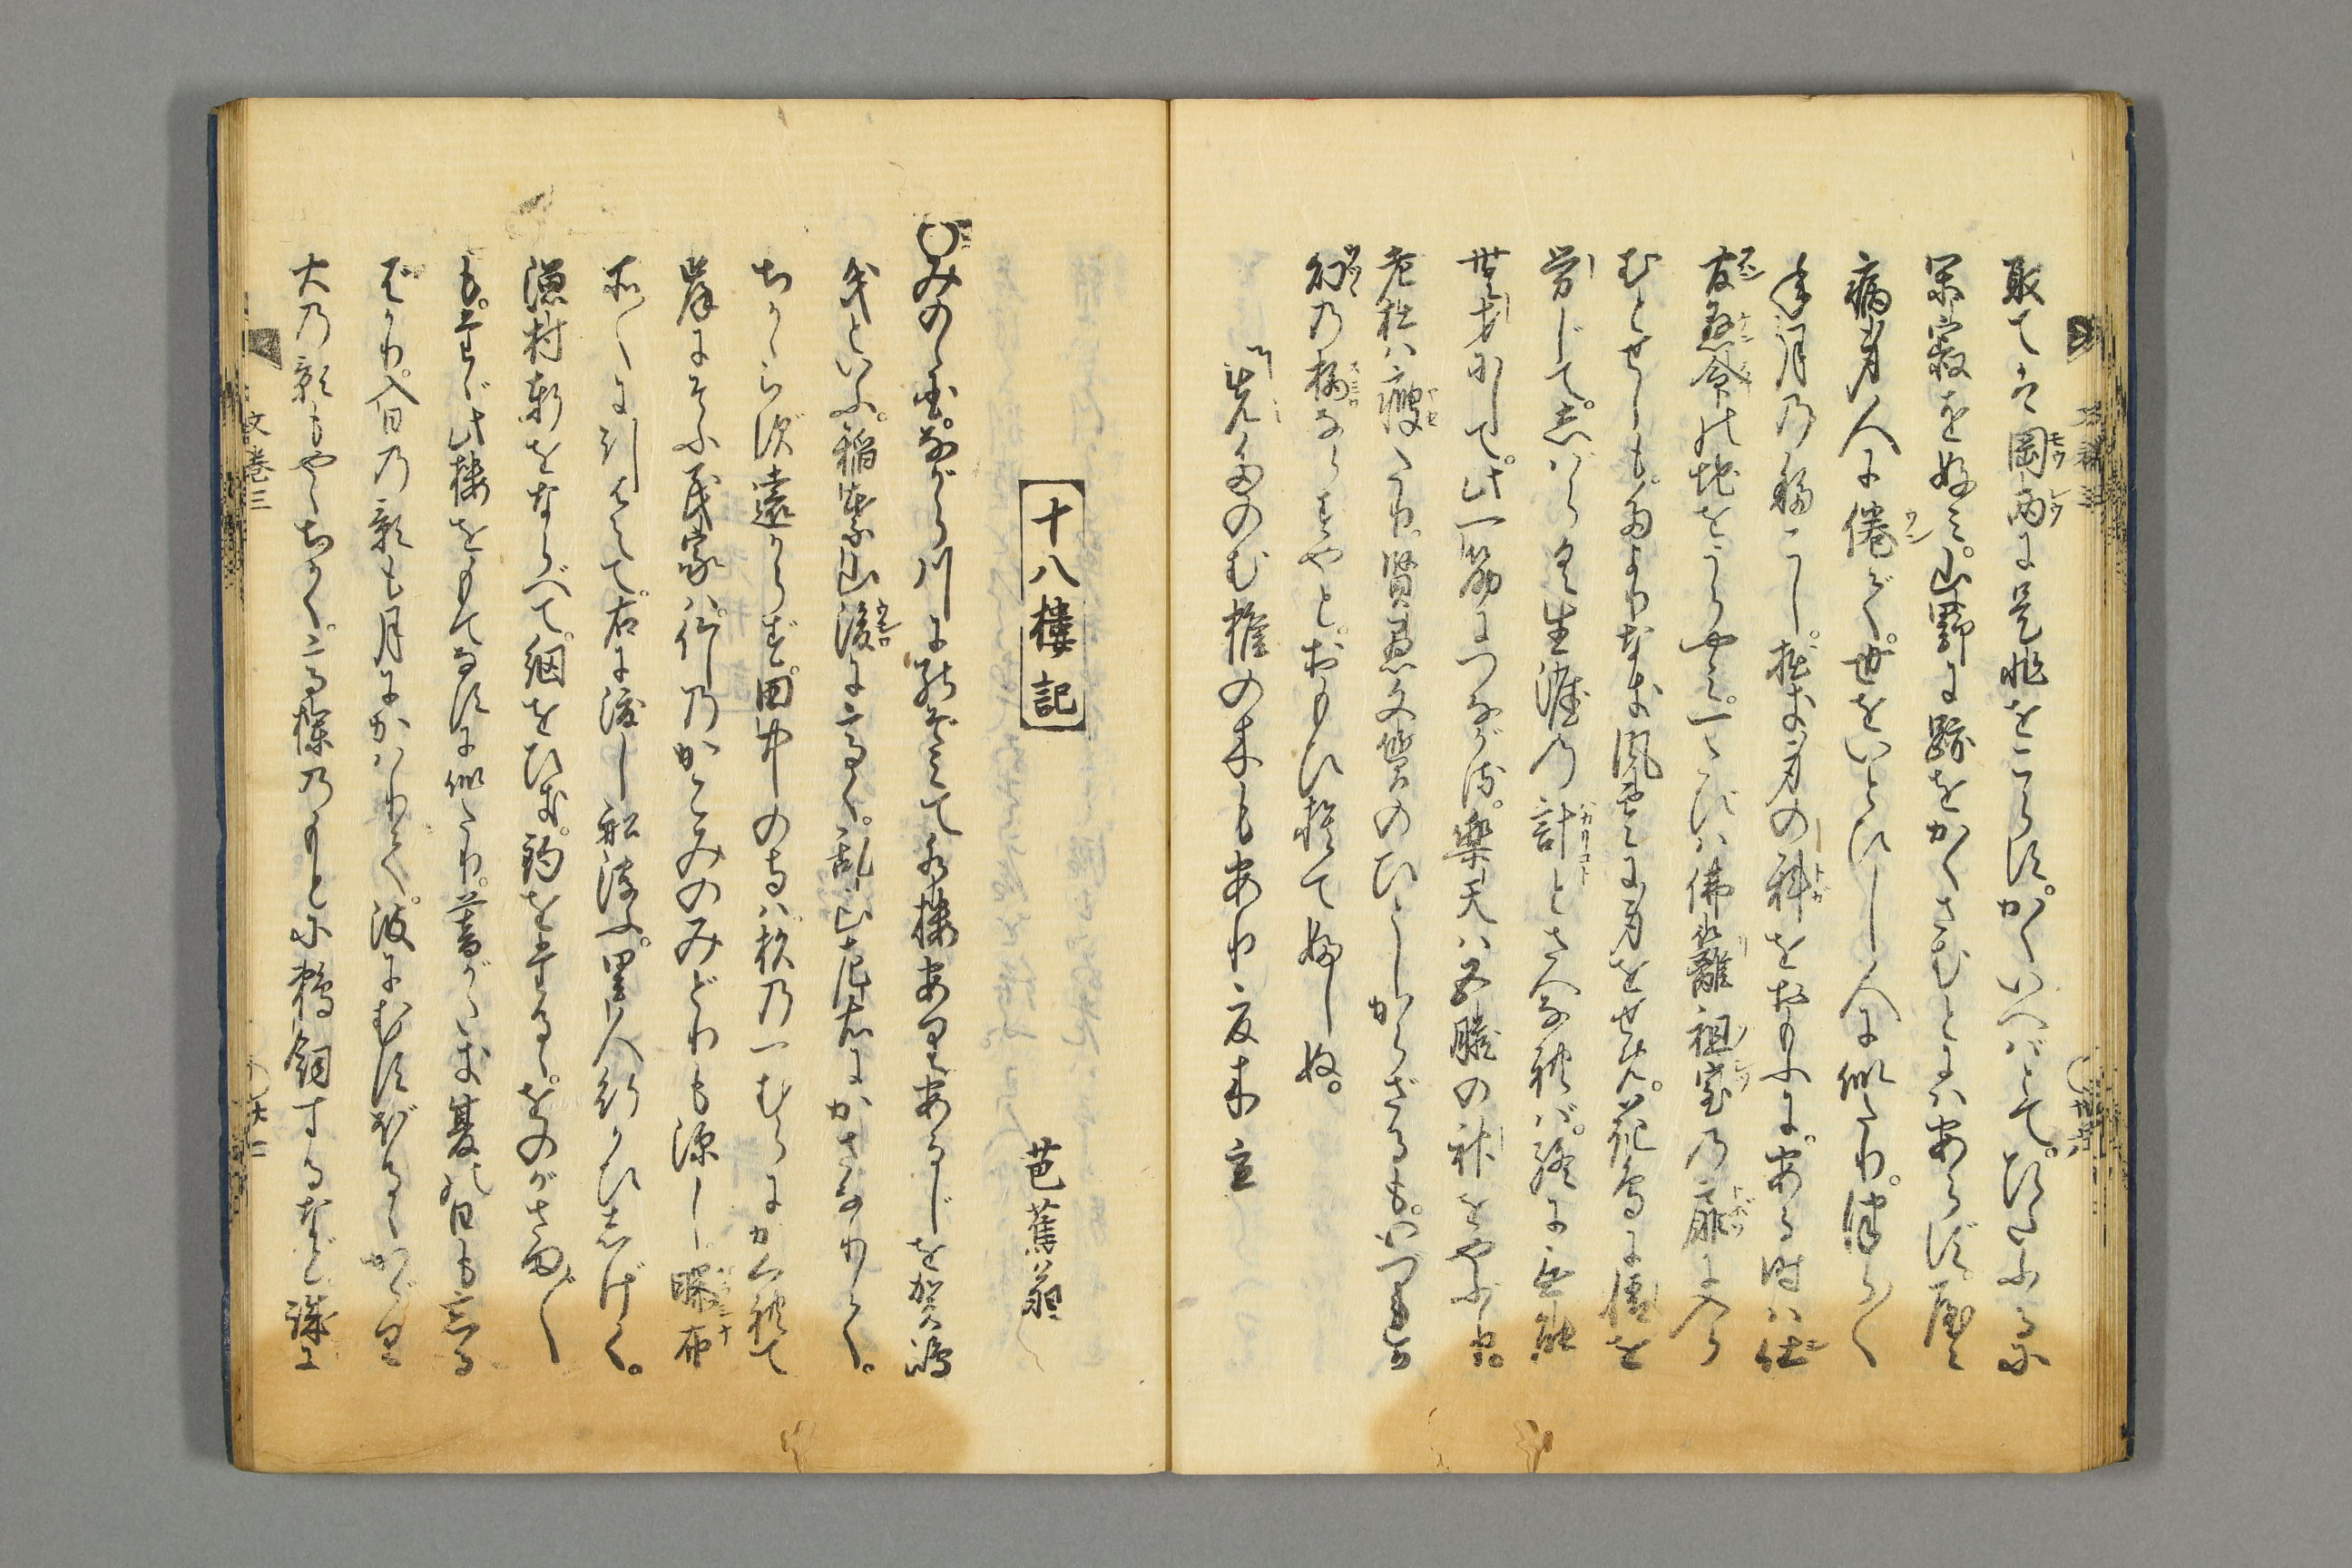 取ては罔兩に是非をこらす。かくいへばとて。ひたふるに
閑寂を好み。山野に跡をかくさむとにはあらず。やゝ
病身人に倦で。世をいとひし人に似たり。つら〳〵
年月の移こし。拙き身の科をおもふに。ある時は仕
官懸命の地をうらやみ。一たびは佛籬祖室の扉に入ら
むとせしも。たよりなき風雲に身をせめ。花鳥に情を
労じて。しばらく生涯の計とさへなれば。終に無能
無才にして。此一筋につながる。樂天は五臓の神をやぶり。
老杜は痩たり。賢愚文質のひとしからざるも。いづれか
幻の栖ならずやと。おもひ捨てふしぬ。
先たのむ椎の木もあり夏木立
十八樓記
芭蕉翁
みのゝ国ながら川に臨て水樓ありあるじを賀嶋
氏といふ。稲葉山後に高く。乱山左右にかさなりて。
ちかゝらず遠からず。田中の寺は杉の一むらにかくれて
岸にそふ民家は竹のかこみのみどりも深し晒布
所〳〵に引はえて。右に渡し船浮ふ。里人行かひしげく。
漁村軒をならべて。網をひき。釣を垂るゝ。をのがさま〴〵
も。たゞ此樓をもてなすに似たり。暮がたき夏の日も忘る
ばかり。入日の影も月にかはりて。波にむすぼるゝかゞり
火の影もやゝちかく。高欄のもとに鵜飼するなど誠に
文巻三